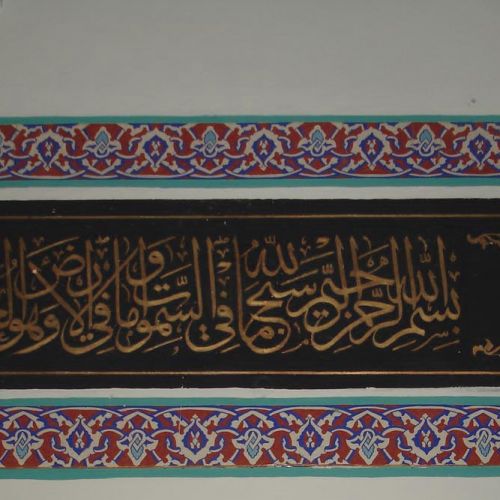 بسم الله الرحمن الرحيم سبح لله ما في السموات وما في الارض وهو